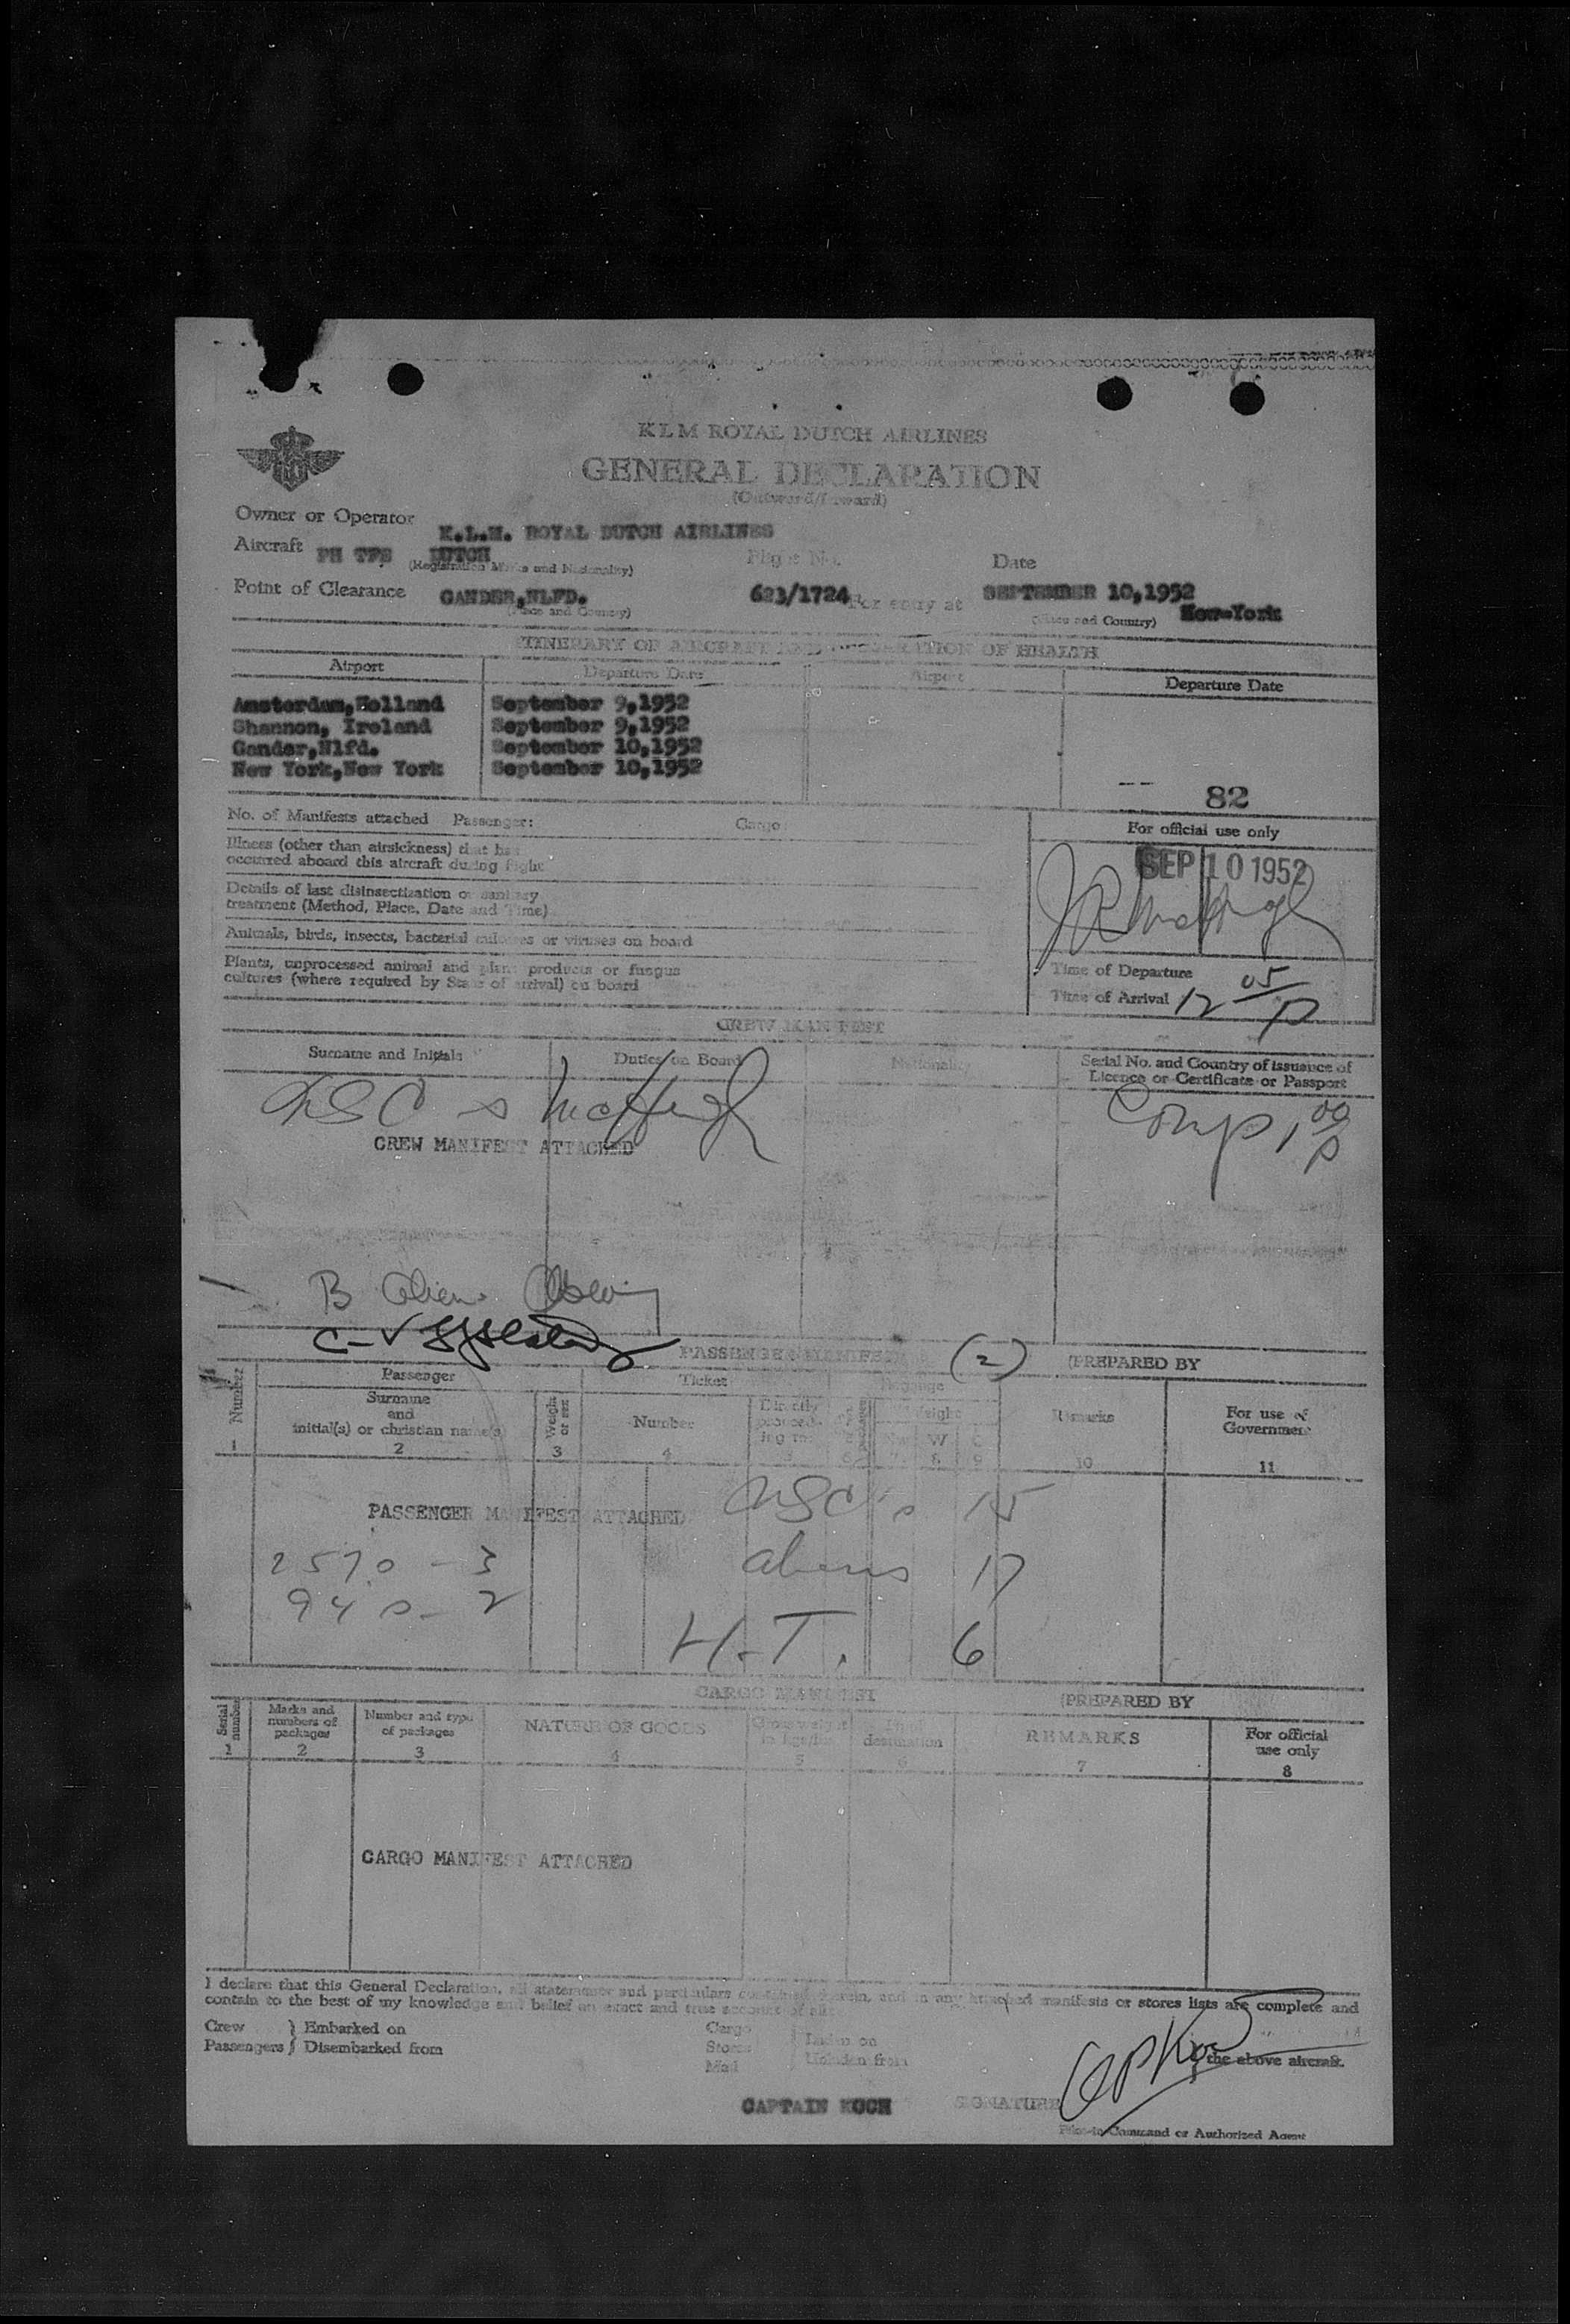 KLM ROYAL DUTCH AIRLINES
GENERAL DECLARATION
(Outward/Inward)
Owner or Operator K.L.M. ROYAL DUTCH AIRLINES
Aircraft PH TFS DUTCH Flight No. Date
(Registration Marks and Nationality)
Point of Clearance GANDER,NLFD. 623/1724 For entry at SEPTEMBER 10,1952
(Place and Country) (Place and Country) New-York
ITINERARY OF AIRCRAFT AND DECLARATION OF HEALTH
Airport Departure Date Airport Departure Date
Amsterdam,Holland September 9,1952
Shannon, Ireland September 9,1952
Gander,Nlfd. September 10,1952
New York,New York September 10,1952
82
No. of Manifests attached Passenger: Cargo:
For official use only
Illness (other than airsickness) that has
occurred aboard this aircraft during flight
SEP 10 1952
Details of last disinsectization or sanitary
treatment (Method, Place, Date and Time)
Animals, birds, insects, bacterial cultures or viruses on board
Plants, unprocessed animal and plant products or fungus
cultures (where required by State of arrival) on board
Time of Departure
Time of Arrival 12 05/P
CREW MANIFEST
Surname and Initials Duties on Board Nationality Serial No. and Country of issuance of
Licence or Certificate or Passport
Comp 1 00/P
CREW MANIFEST ATTACHED
B
PASSENGER MANIFEST (2) (PREPARED BY
Number Passenger Ticket Baggage
Surname
and
initial(s) or christian name(s)
Weight or sex
Number
Weight
W
Remarks
For use of
Government
1 2 3 4 5 6 7 8 9 10 11
PASSENGER MANIFEST ATTACHED USC's 15
2570 - 3 aliens 17
940 - 2
H.T. 6
CARGO MANIFEST (PREPARED BY
Serial numbers
Marks and
numbers of
packages
Number and type
of packages
NATURE OF GOODS
destination
REMARKS
For official
use only
1 2 3 4 5 6 7 8
CARGO MANIFEST ATTACHED
I declare that this General Declaration, all statements and particulars contained therein, and in any attached manifests or stores lists are complete and
contain to the best of my knowledge and belief an exact and true account of all
Crew } Embarked on Cargo Laden on
Passengers } Disembarked from Stores Unladen from
Mail
the above aircraft.
CAPTAIN KOCH SIGNATURE
Pilot-in-Command or Authorized Agent